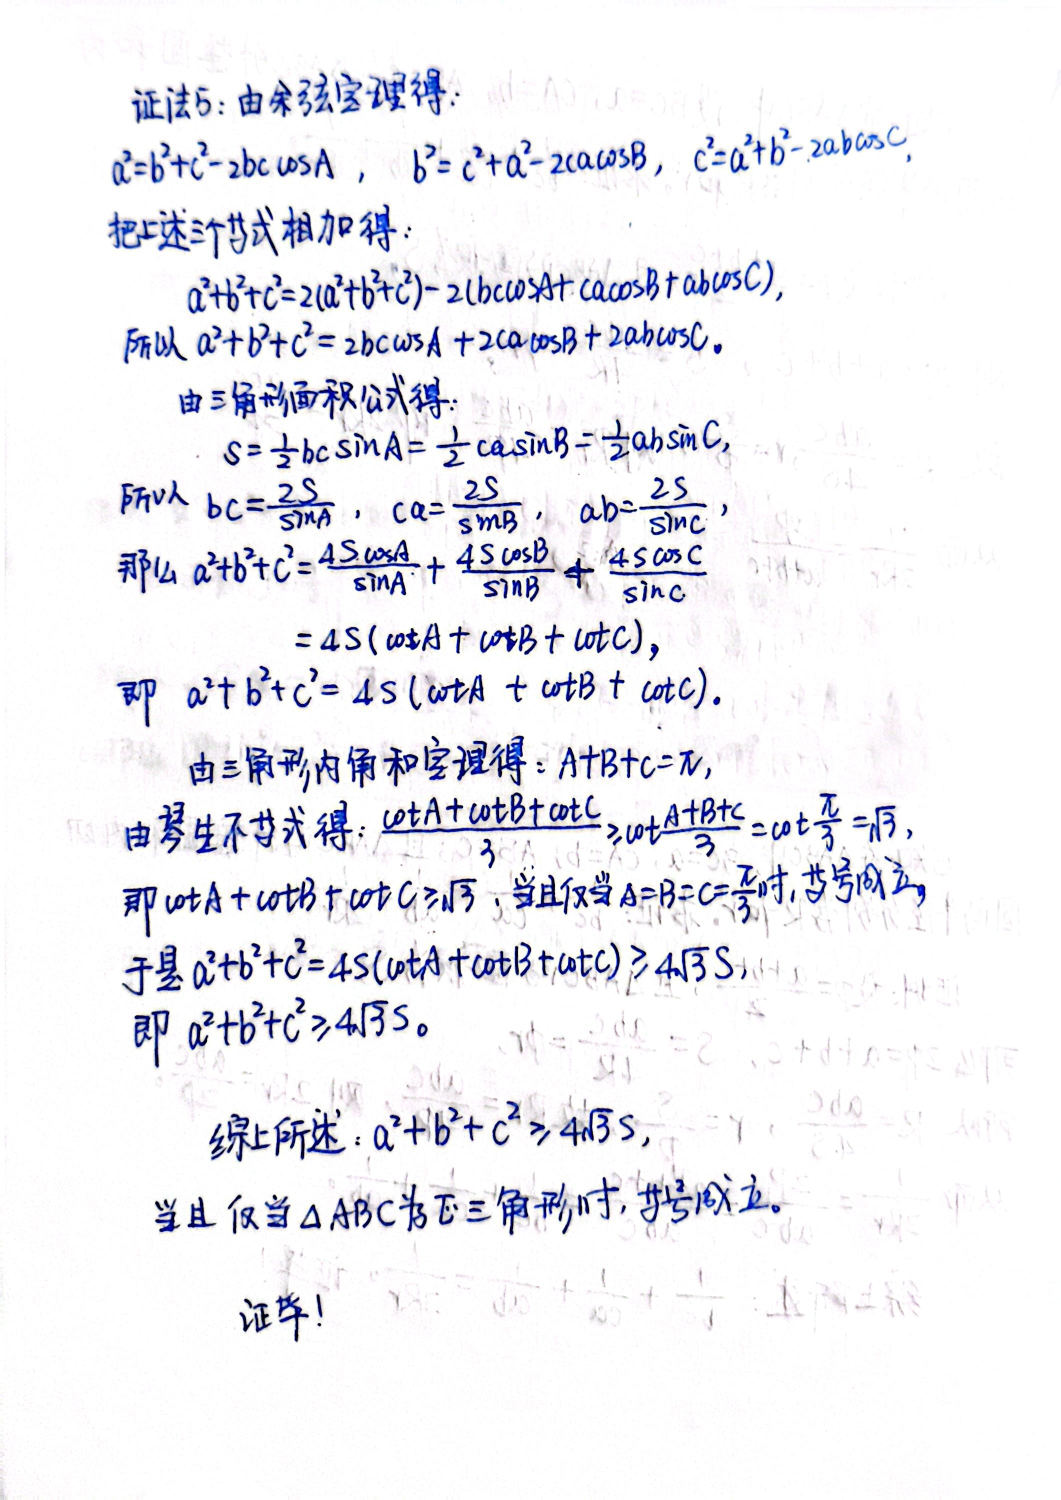 证法5:由余弦定理得:
a²=b²+c²-2bccosA, b²=c²+a²-2cacosB, c²=a²+b²-2abcosC,
把上述三个等式相加得:
a²+b²+c²=2(a²+b²+c²)-2(bccosA+cacosB+abcosC),
所以 a²+b²+c²=2bccosA+2cacosB+2abcosC。
由三角形面积公式得:
S=½bcsinA=½casinB=½absinC,
所以 bc=2S/sinA, ca=2S/sinB, ab=2S/sinC,
那么 a²+b²+c²=4ScosA/sinA+4ScosB/sinB+4ScosC/sinC
=4S(cotA+cotB+cotC),
即 a²+b²+c²=4S(cotA+cotB+cotC)。
由三角形内角和定理得:A+B+C=π,
由琴生不等式得:(cotA+cotB+cotC)/3≥cot(A+B+C)/3=cotπ/3=√3,
即cotA+cotB+cotC≥√3,当且仅当A=B=C=π/3时,等号成立,
于是a²+b²+c²=4S(cotA+cotB+cotC)≥4√3S,
即 a²+b²+c²≥4√3S。
综上所述:a²+b²+c²≥4√3S,
当且仅当△ABC为正三角形时,等号成立。
证毕!